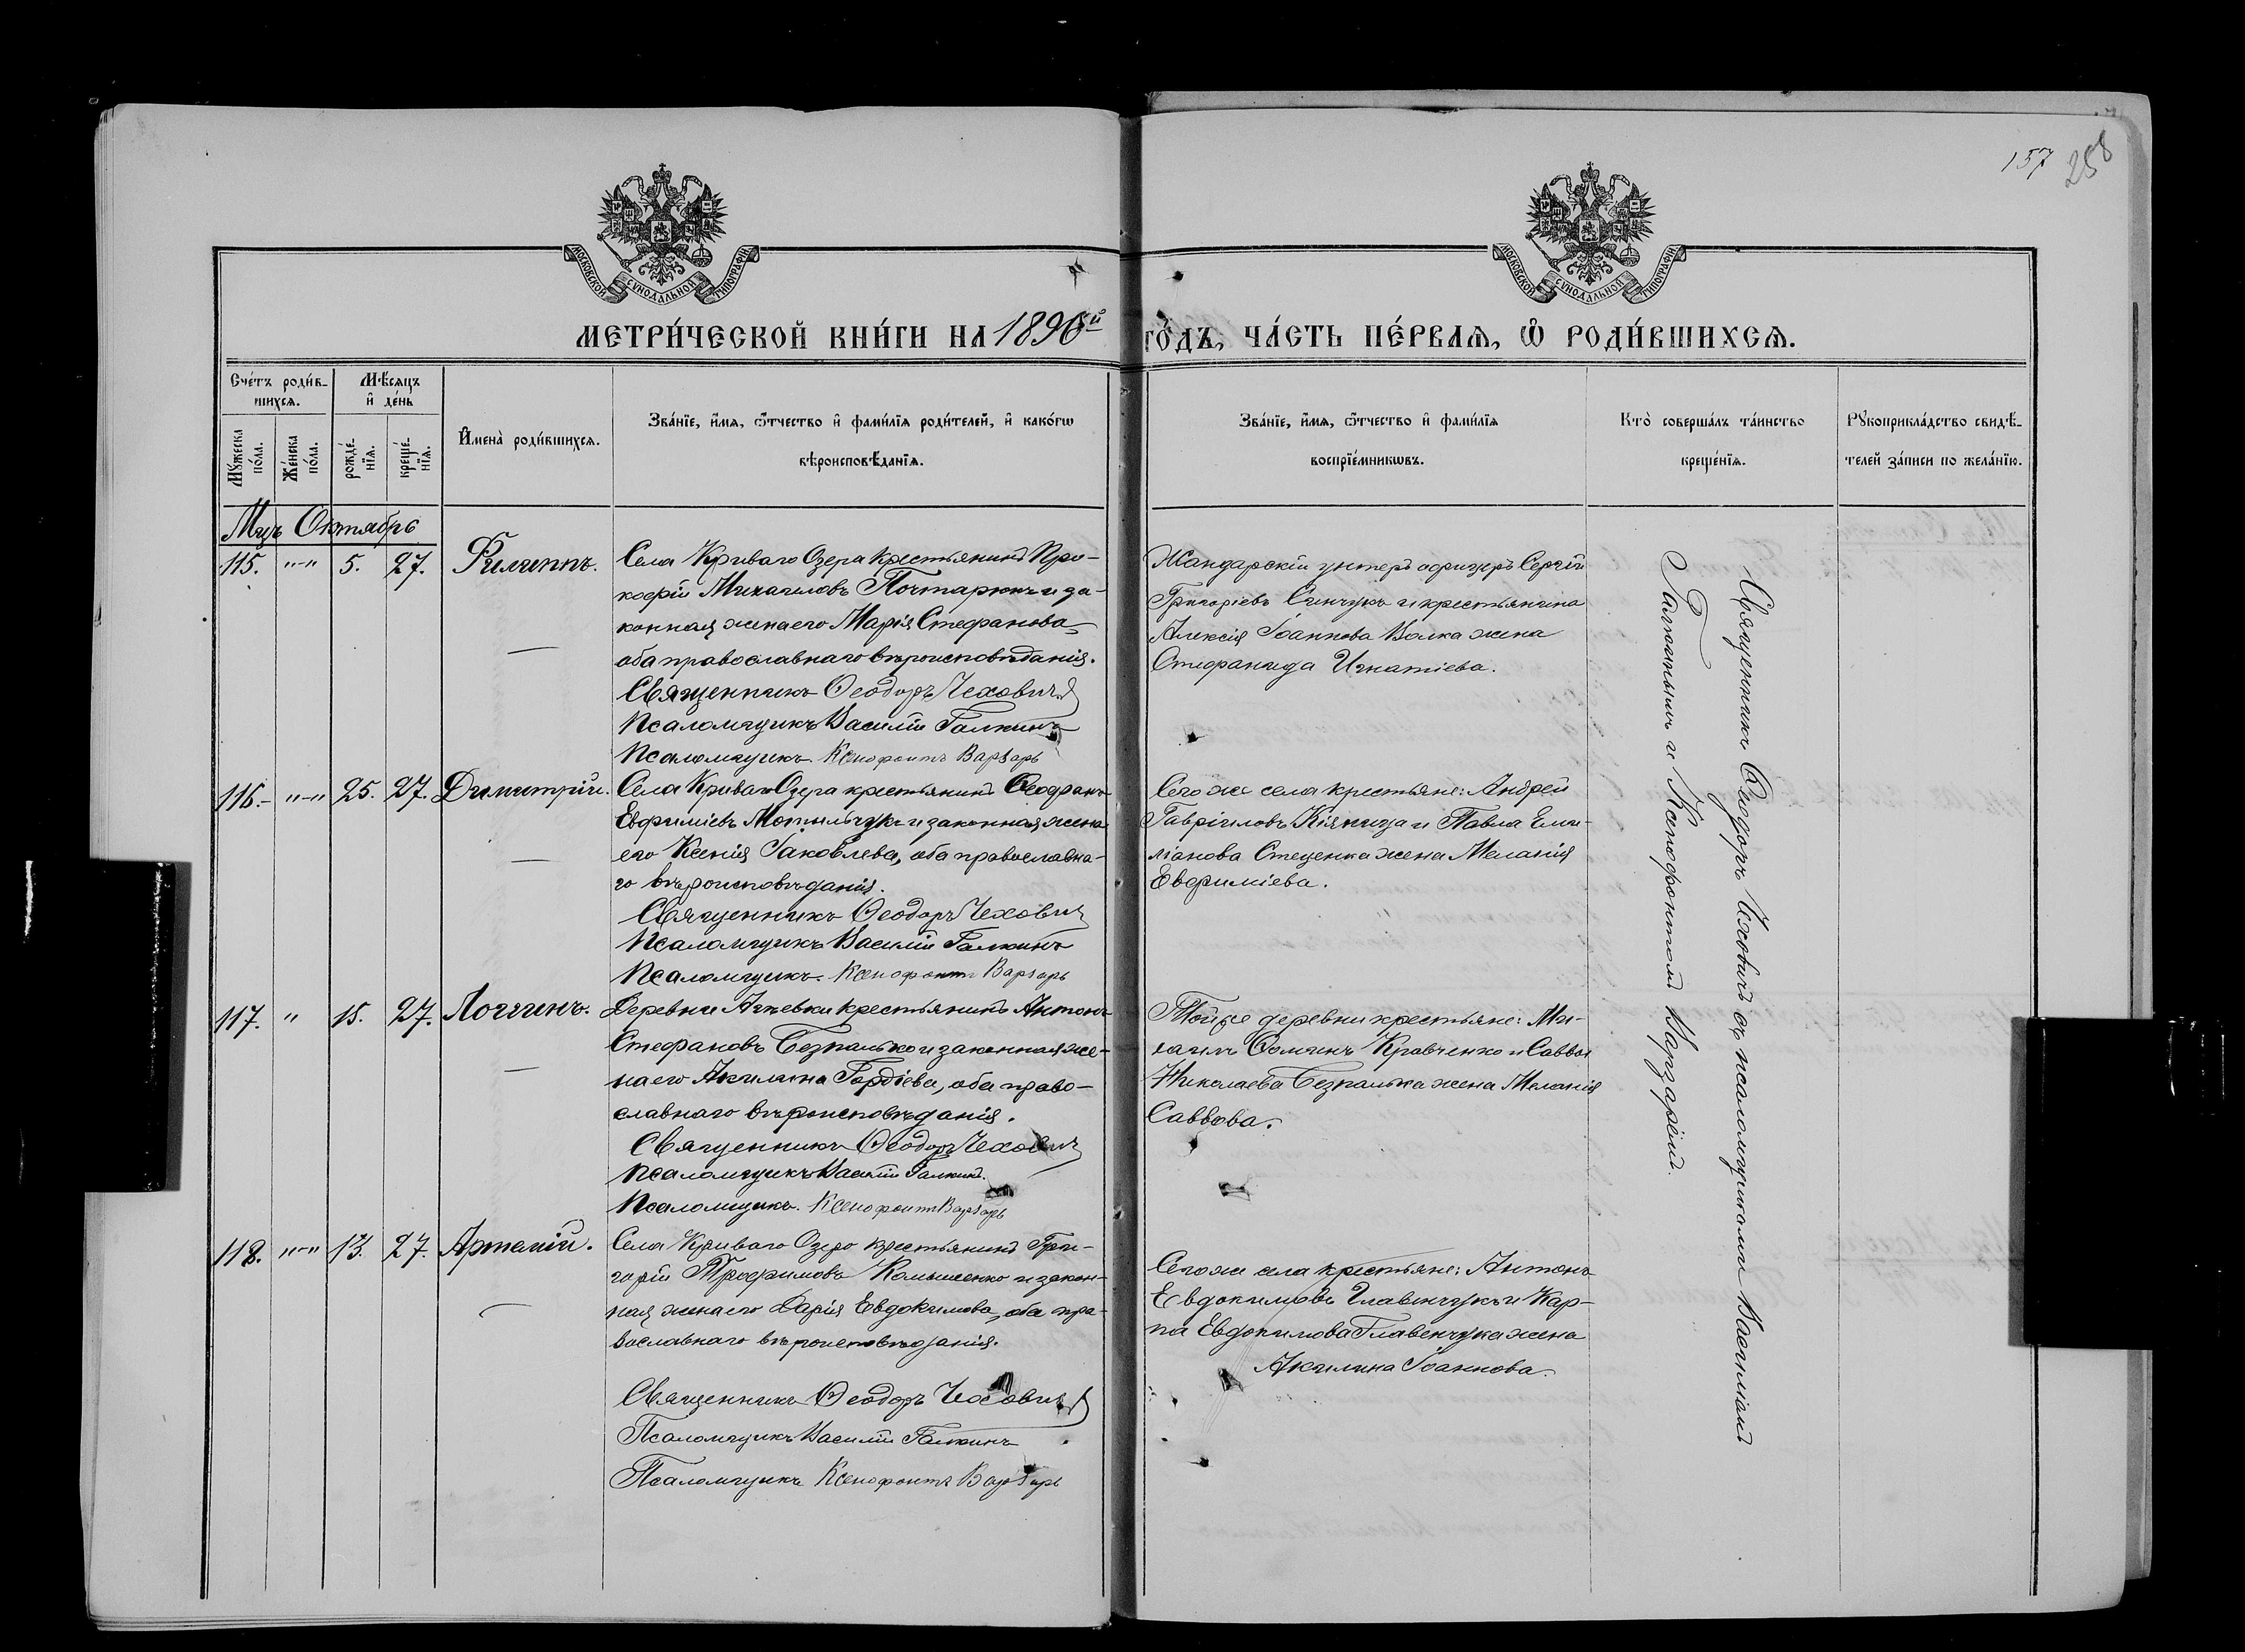 157 258
МОСКОВСКОЙ СѴНОДАЛЬНОЙ ТИПОГРАФІИ
МОСКОВСКОЙ СѴНОДАЛЬНОЙ ТИПОГРАФІИ
МЕТРИ́ЧЕСКОЙ КНИ́ГИ НА 1896й ГО́ДЪ, ЧА́СТЬ ПЕ́РВАѦ, Ѡ҆ РОДИ́ВШИХСѦ.
Сче́тъ роди́в-
шихсѧ.
Мꙋ́жеска по́ла.
Же́нска по́ла.
Мѣ́сѧцъ
и҆ де́нь
рожде́-
нїѧ.
креще́-
нїѧ.
И҆мена̀ роди́вшихсѧ.
Зва́нїе, и҆́мѧ, ѻ҆́тчество и҆ фами́лїѧ роди́телей, и҆ како́гѡ
вѣроисповѣ́данїѧ.
Зва́нїе, и҆́мѧ, ѻ҆́тчество и҆ фами́лїѧ
воспрїе́мникѡвъ.
Кто̀ соверша́лъ та́инство
креще́нїѧ.
Рꙋкоприкла́дство свидѣ́-
телей за́писи по жела́нїю.
Мцъ Октябрь
115. "-" 5. 27. Филиппъ.
Села Криваго Озера крестьянинъ Про-
кофій Михаиловъ Почтарюкъ и за-
конная жена его Марія Стефанова,
оба православнаго вѣроисповѣданія.
Священникъ Ѳеодоръ Чеховичъ
Псаломщикъ Василій Галкинъ
Псаломщикъ Ксенофонтъ Варзарь
Жандарскій унтеръ офицеръ Сергій
Григоріевъ Синчукъ и крестьянина
Алексія Іоаннова Волка жена
Стефанида Игнатіева.
116.- "-" 25. 27. Димитрій.
Села Криваго Озера крестьянинъ Ѳеофанъ
Евфиміевъ Мотыльчукъ и законная жена
его Ксенія Іаковлева, оба православна-
го вѣроисповѣданія.
Священникъ Ѳеодоръ Чеховичъ
Псаломщикъ Василій Галкинъ
Псаломщикъ Ксенофонтъ Варзарь
Сего же села крестьяне: Андрей
Гавріиловъ Кіяница и Павла Еми-
ліанова Стеценка жена Меланія
Евфиміева.
117. " 15. 27. Логгинъ.
Деревни Агѣевки крестьянинъ Антонъ
Стефановъ Безпалько и законная же-
на его Акилина Гордіева, оба право-
славнаго вѣроисповѣданія.
Священникъ Ѳеодоръ Чеховичъ
Псаломщикъ Василій Галкинъ.
Псаломщикъ. Ксенофонтъ Варзарь
Той же деревни крестьяне: Ми-
хаилъ Ѳоминъ Кравченко и Саввы
Николаева Безпалька жена Меланія
Саввова.
118. "-" 13. 27. Артемій.
Села Криваго Озера крестьянинъ Гри-
горій Трофимовъ Комышенко и закон-
ная жена его Дарія Евдокимова, оба пра-
вославнаго вѣроисповѣданія.
Священникъ Ѳеодоръ Чеховичъ
Псаломщикъ Василій Галкинъ
Псаломщикъ Ксенофонтъ Варзарь
Сего же села крестьяне: Антонъ
Евдокимовъ Главенчукъ и Кар-
па Евдокимова Главенчука жена
Акилина Іоаннова.
Священникъ Ѳеодоръ Чеховичъ съ псаломщиками Василіемъ
Галкинымъ и Ксенофонтомъ Варзаремъ.